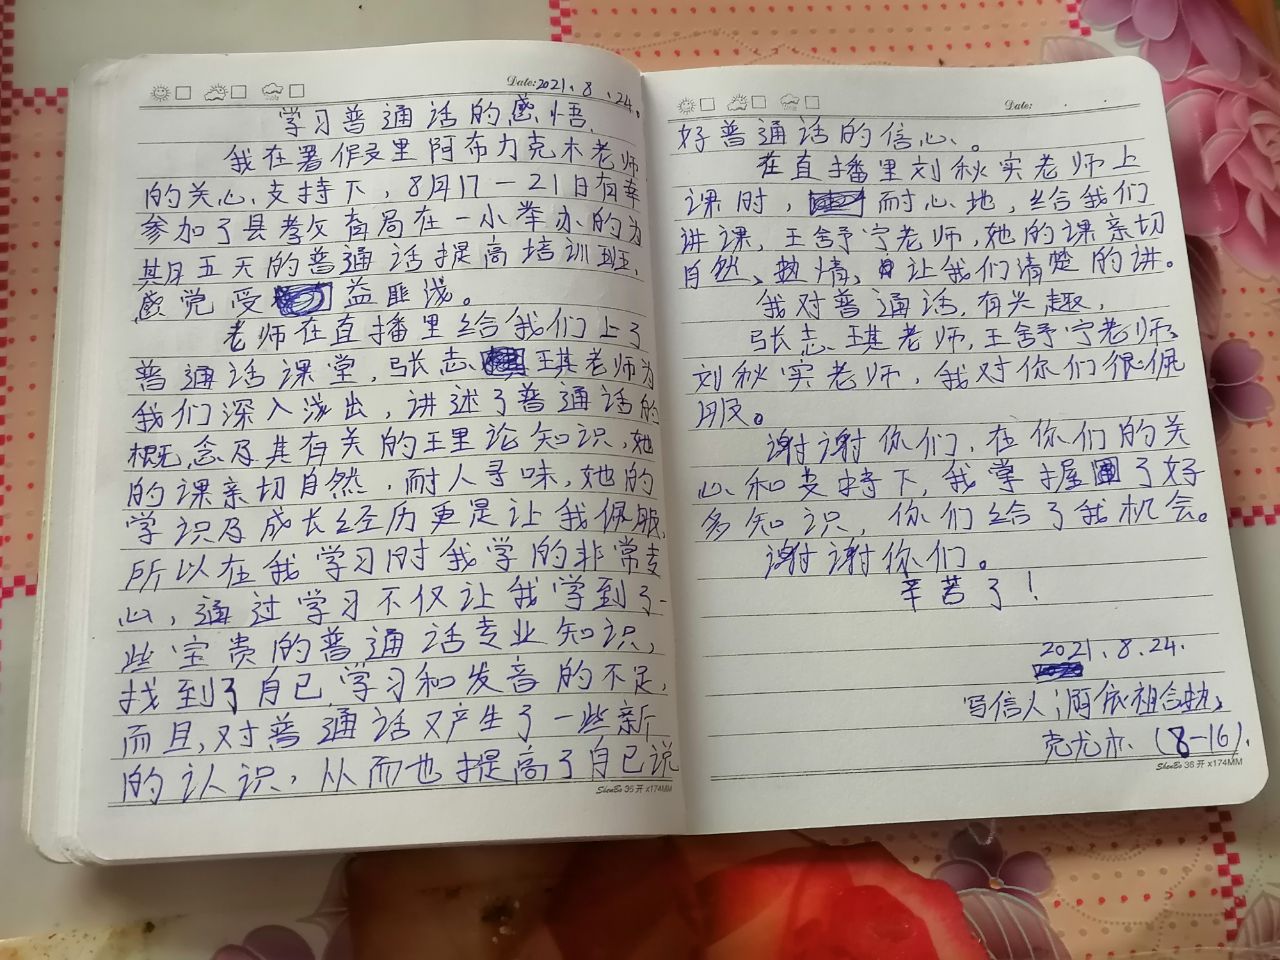 Date: 2021.8.24.
学习普通话的感悟.
我在署假艾里阿布力克木老师
的关心支持下，8月17－21日有幸
参加了县教育局在一小举办的为
期五天的普通话提高培训班,
感觉受益匪浅。
老师在直播里给我们上了
普通话课堂,张志琪老师为
我们深入浅出，讲述了普通话的
概念及其有关的理论知识,她
的课亲切自然,耐人寻味,她的
学识及成长经历更是让我佩服,
所以在我学习时我学的非常专
心，通过学习不仅让我学到了一
些宝贵的普通话专业知识,
找到了自己,学习和发音的不足,
而且,对普通话又产生了一些新
的认识，从而也提高了自己说
ShenBo 36开 x174MM
Date:
好普通话的信心、。
在直播里刘秋实老师上
课时，耐心地，给我们
讲课,王舒宁老师,她的课亲切
自然、热情,让我们清楚的讲。
我对普通话,有兴趣,
张志琪老师,王舒宁老师,
刘秋实老师，我对你们很佩
服。
谢谢你们,在你们的关
心和支持下,我掌握了好
多知识，你们给了我机会。
谢谢你们。
辛苦了！
2021.8.24.
写信人;阿依祖合热,
克尤木.(8-16).
ShenBo 36开 x174MM